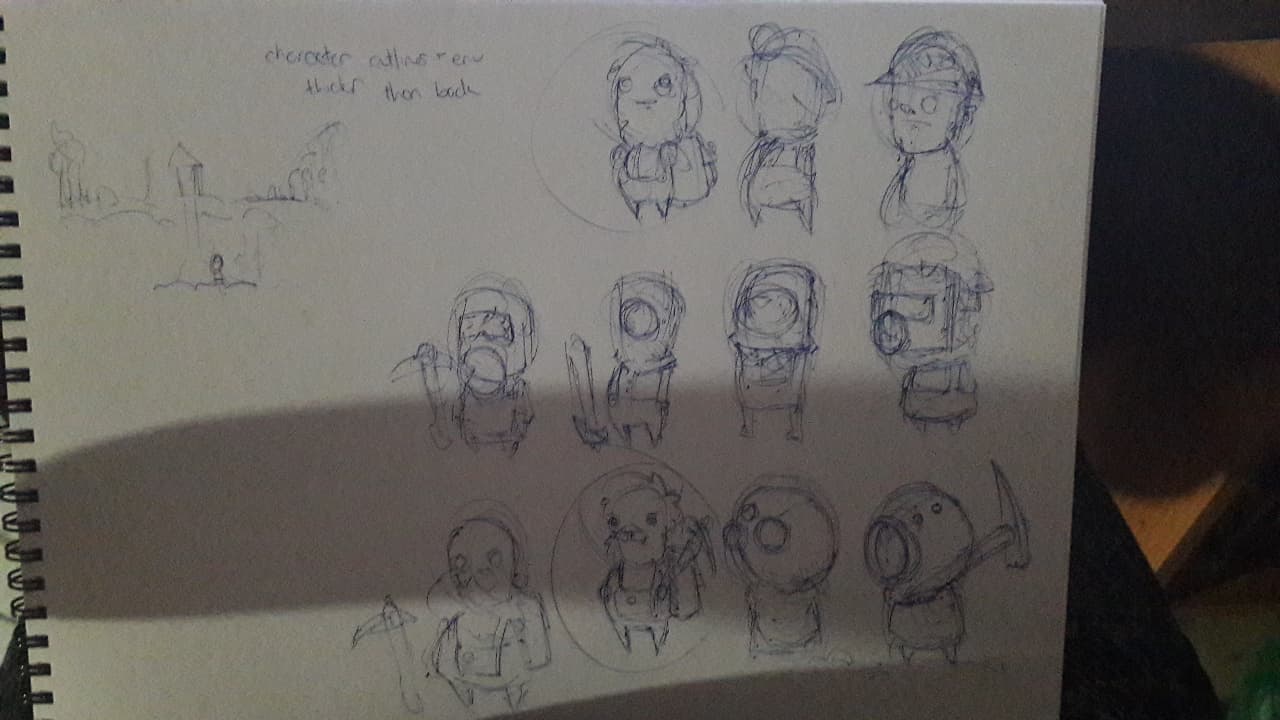 character outlines + env
thicker than back